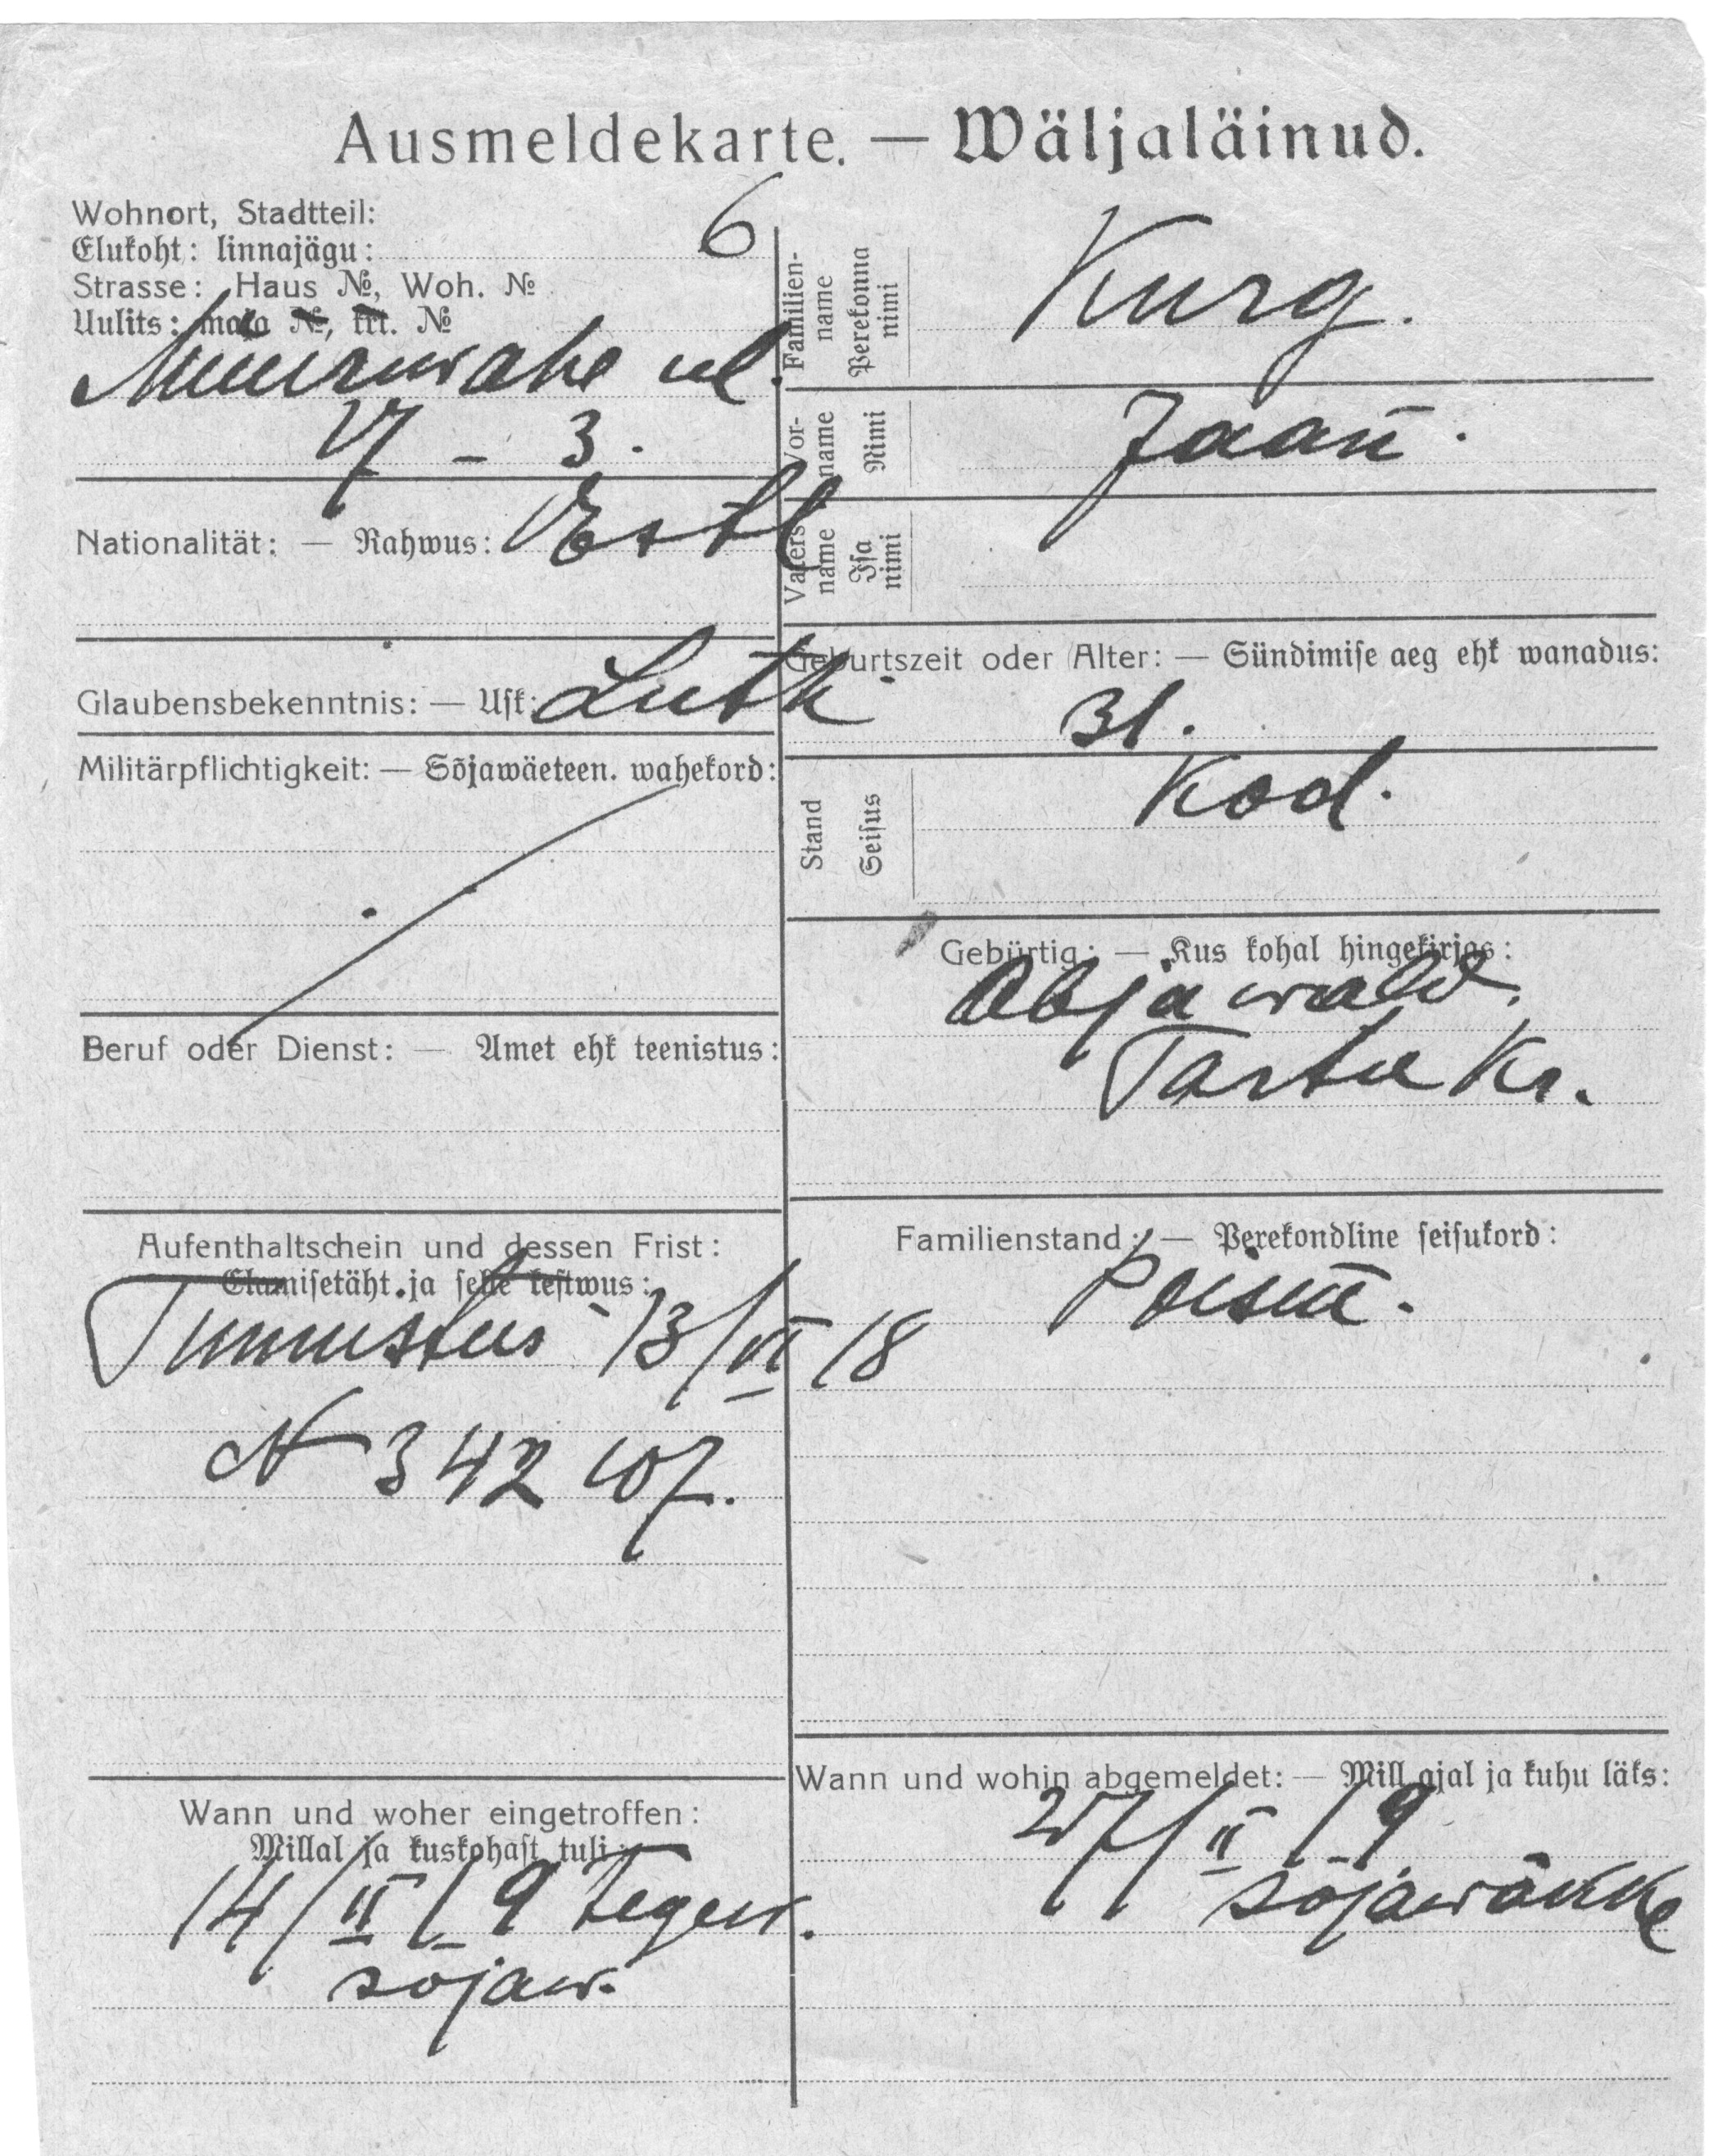 Ausmeldekarte. — Wäljaläinud.
Wohnort, Stadtteil:
Elukoht: linnajägu:
6
Strasse: Haus №, Woh. №
Uulits: maja №, krt. №
ul.
17 – 3.
Nationalität: — Rahwus: Estl
Glaubensbekenntnis: — Usk: Luth.
Militärpflichtigkeit: — Sõjawäeteen. wahekord:
Beruf oder Dienst: — Amet ehk teenistus:
Aufenthaltschein und dessen Frist:
Elamisetäht ja selle kestwus:
Tunnistus 13/VI 18
N 342
Wann und woher eingetroffen:
Millal ja kuskohast tuli:
14/II 19 tegew.
sõjaw.
Familien-name Perekonna nimi
Kurg.
Vor-name Nimi
Jaan.
Vaters name Isa nimi
Geburtszeit oder Alter: — Sündimise aeg ehk wanadus:
31.
Stand Seisus
Kod.
Gebürtig: — Kus kohal hingekirjas:
Abja wald.
Tartu Kr.
Familienstand: — Perekondline seisukord:
Poism.
Wann und wohin abgemeldet: — Mill ajal ja kuhu läks:
27/II 19
sõjawäkke